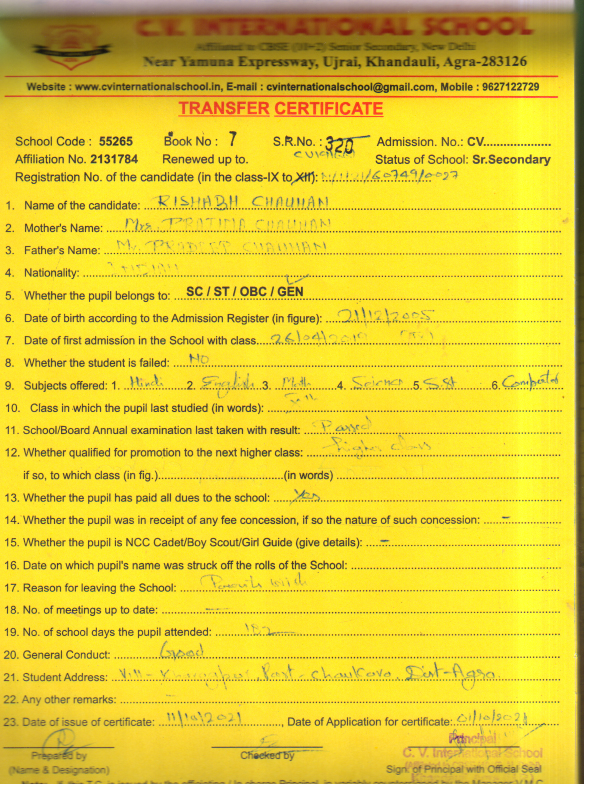 C.V. INTERNATIONAL SCHOOL
Affiliated to CBSE (10+2) Senior Secondary, New Delhi
Near Yamuna Expressway, Ujrai, Khandauli, Agra-283126
Website : www.cvinternationalschool.in, E-mail : cvinternationalschool@gmail.com, Mobile : 9627122729
TRANSFER CERTIFICATE
School Code : 55265 Book No : 7 S.R.No. : 320 Admission. No.: CV....................
Affiliation No. 2131784 Renewed up to. Status of School: Sr.Secondary
Registration No. of the candidate (in the class-IX to XII): /60749/0097
1. Name of the candidate: RISHABH CHAUHAN
2. Mother's Name: Mrs. PRATIMA CHAUHAN
3. Father's Name: Mr. PRADEEP CHAUHAN
4. Nationality: INDIAN
5. Whether the pupil belongs to: SC / ST / OBC / GEN
6. Date of birth according to the Admission Register (in figure): 21/12/2005
7. Date of first admission in the School with class 26/04/2019
8. Whether the student is failed: NO
9. Subjects offered: 1. Hindi 2. English 3. Math 4. Science 5. S.St 6. Computer
10. Class in which the pupil last studied (in words):
11. School/Board Annual examination last taken with result: Passed
12. Whether qualified for promotion to the next higher class: Higher class
if so, to which class (in fig.) (in words)
13. Whether the pupil has paid all dues to the school: Yes
14. Whether the pupil was in receipt of any fee concession, if so the nature of such concession: –
15. Whether the pupil is NCC Cadet/Boy Scout/Girl Guide (give details): –
16. Date on which pupil's name was struck off the rolls of the School:
17. Reason for leaving the School: wish
18. No. of meetings up to date: —
19. No. of school days the pupil attended: 182
20. General Conduct: Good
21. Student Address: Vill- Post- Dist-Agra
22. Any other remarks: –
23. Date of issue of certificate: 11/10/2021, Date of Application for certificate: 01/10/2021
Principal
Prepared by Checked by C. V. International School
(Name & Designation) Sign. of Principal with Official Seal